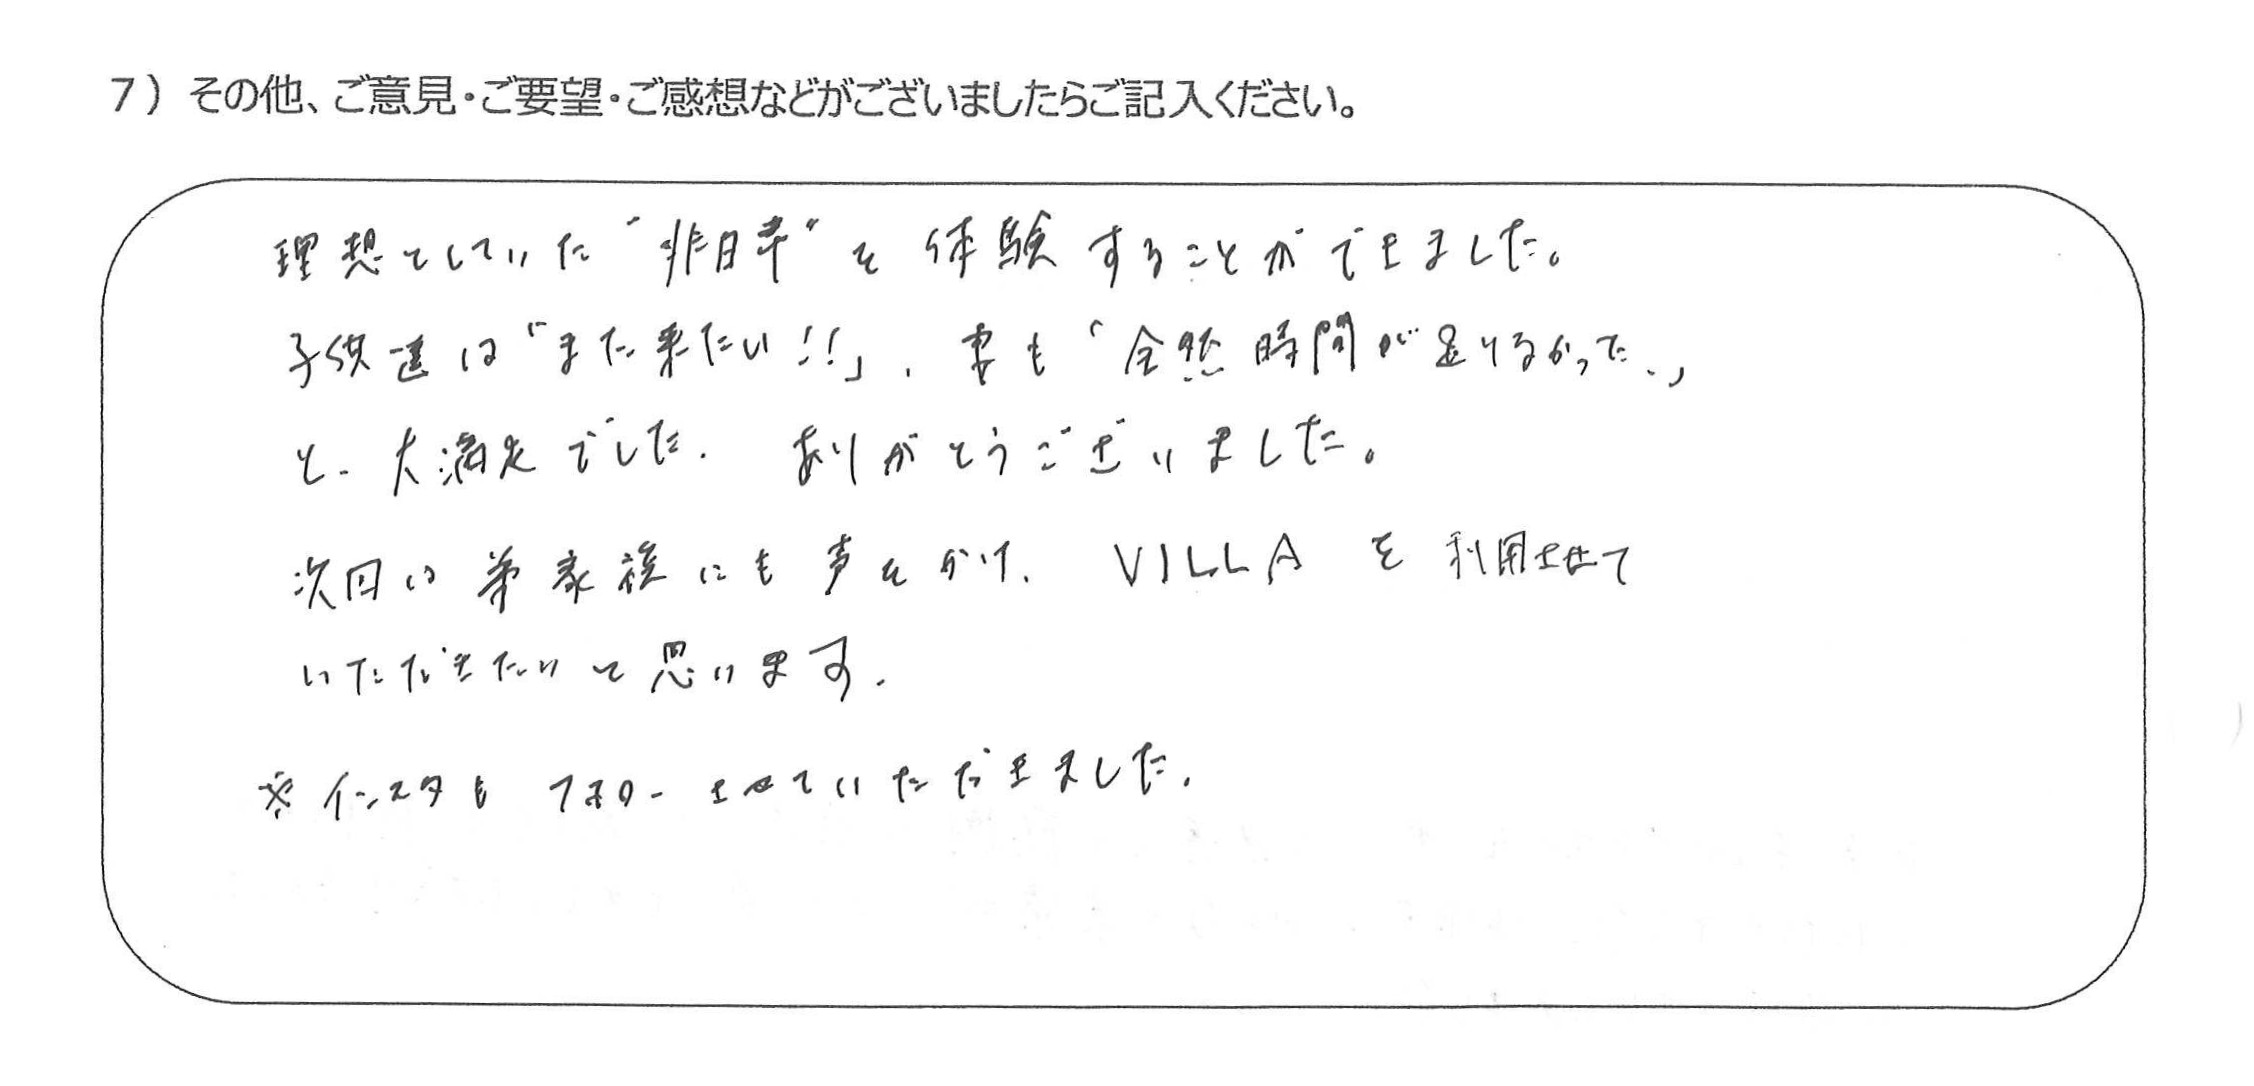 7）その他、ご意見・ご要望・ご感想などがございましたらご記入ください。
理想としていた"非日常"を体験することができました。
子供達は「また来たい!!」、妻も「全然時間が足りなかった、」
と、大満足でした。ありがとうございました。
次回は弟家族にも声をかけ、VILLAを利用させて
いただきたいと思います。
※インスタもフォローさせていただきました。